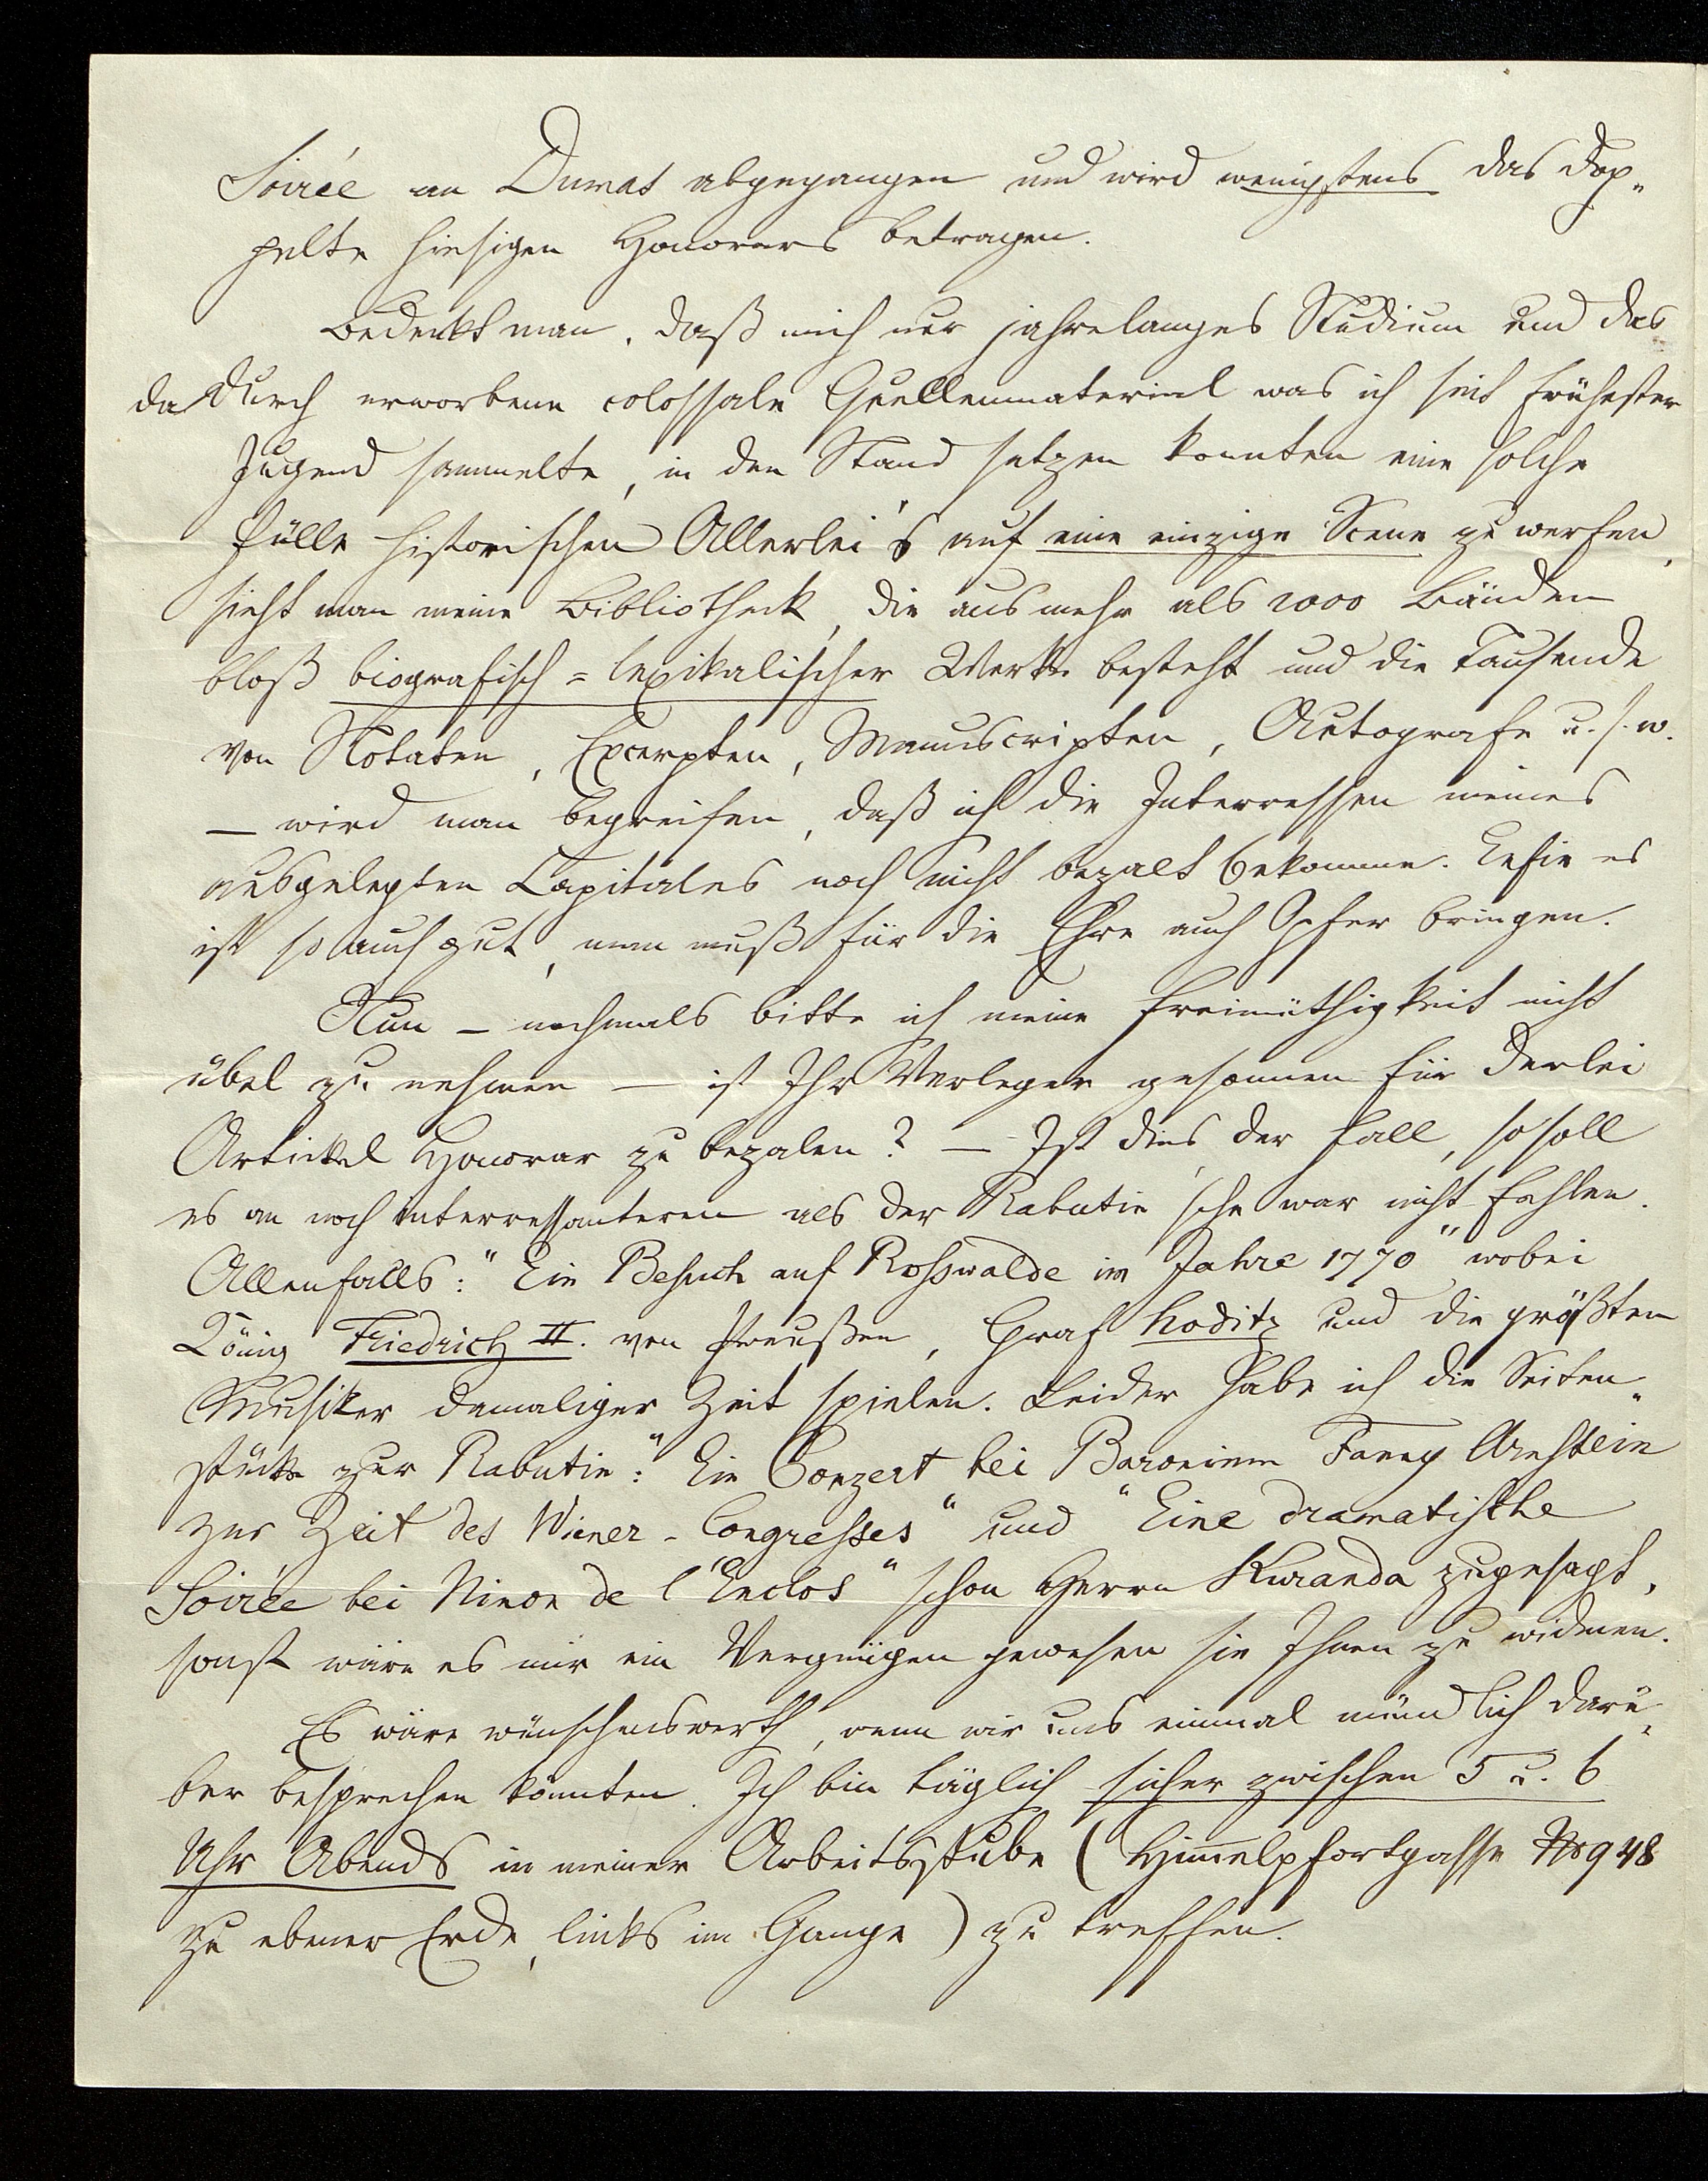 Soirée an Dumas abgegangen und wird wenigstens das dop„
pelte hiesigen Honorars betragen.
Bedenkt man, daß mich nur jahrelanges Studium und das
dadurch erworbene colossale Quellenmaterial was ich seit frühester
Jugend sammelte, in den Stand setzen konnten eine solche
Fülle historischen Allerlei's auf eine einzige Scene zu werfen,
sieht man meine Bibliotheck, die aus mehr als 2000 Bänden
bloß biografisch=lexikalischer Werke besteht und die Tausende
von Notaten, Excerpten, Manuscripten, Autografe u. s. w.
— wird man begreifen, daß ich die Interressen meines
ausgelegten Capitales noch nicht bezalt bekomme. es
ist so auch gut, man muß für die Ehre auch Opfer bringen.
Nun – nochmals bitte ich meine Freimüthigkeit nicht
übel zu nehmen — ist Ihr Verleger gesonnen für derlei
Artickel Honorar zu bezalen? — Ist dies der Fall, so soll
es an noch interressanteren als der Rabutin'sche war nicht fehlen.
Allenfalls: "Ein Besuch auf Rosswalde im Jahre 1770" wobei
König Friedrich II. von Preußen, Graf Hoditz und die größten
Musiker damaliger Zeit spielen. Leider habe ich die Seiten„
stücke zur Rabutin: "Ein Conzert bei Baroninn Fanny Arnstein
zur Zeit des Wiener-Congresses" und "Eine dramatische
Soirée bei Ninon de l'Enclos" schon Herrn Kuranda zugesagt,
sonst wäre es mir ein Vergnügen gewesen sie Ihnen zu widmen.
Es wäre wünschenswerth, wenn wir uns einmal mündlich darü„
ber besprechen könnten. Ich bin täglich sicher zwischen 5 u. 6
Uhr Abends in meiner Arbeitsstube (Himmelpfortgasse No 948
zu ebener Erde, links im Gange) zu treffen.